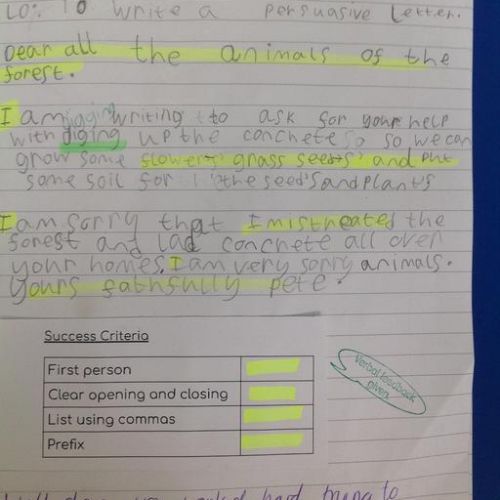 LO: To write a persuasive letter.
Dear all the animals of the
forest.
I am writing to ask for your help
digging
with diging up the concrete so so we can
grow some flowers, grass seeds, and put
some soil for the seeds and plants
I am sorry that I mistreated the
forest and lad concrete all over
your homes. I am very sorry animals.
Yours fathfully pete.
Success Criteria
First person
Clear opening and closing
List using commas
Prefix
Verbal feedback
given